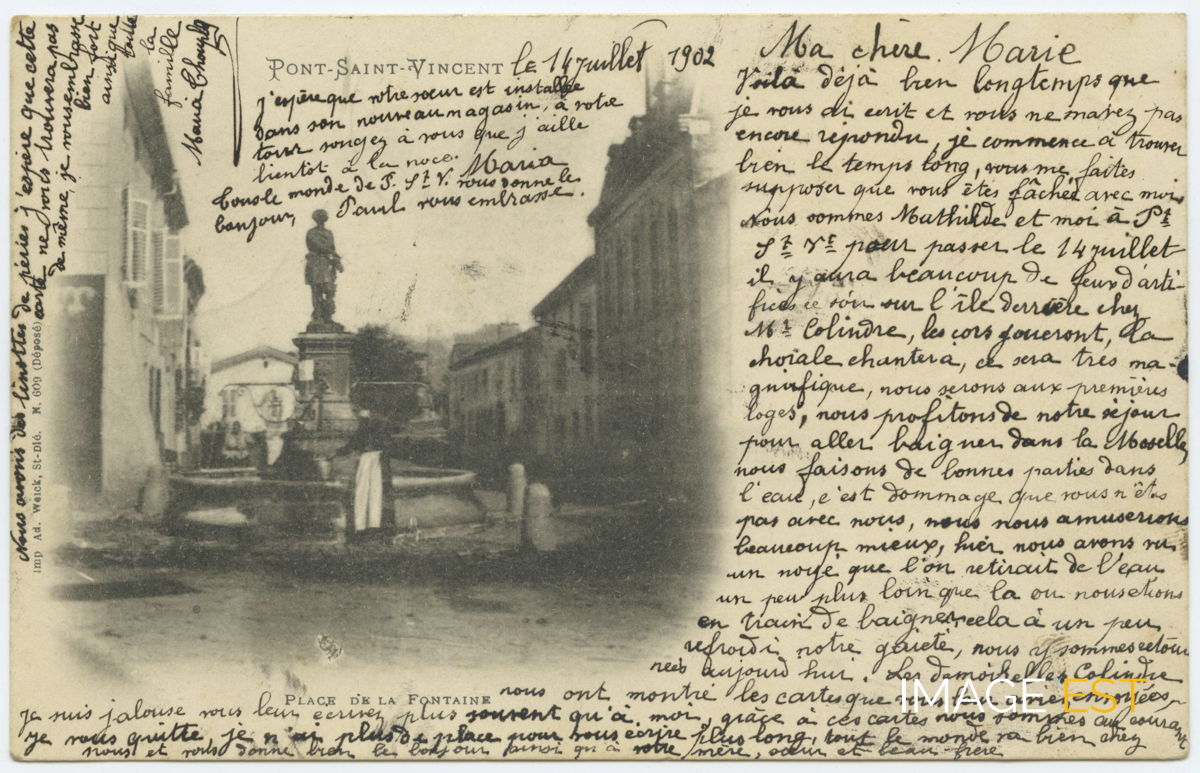 PONT-SAINT-VINCENT le 14 juillet 1902
Ma chère Marie
Voilà déjà bien longtemps que
je vous ai écrit et vous ne mavez pas
encore répondu, je commence à trouver
bien le temps long, vous me faites
supposer que vous êtes fâchée avec moi
Nous sommes Mathilde et moi à Pt
St Vt pour passer le 14 juillet
il y aura beaucoup de feux d'arti-
fices ce soir sur l'île derrière chez
Mr Colindre, les cors joueront, la
chorale chantera, ce sera très ma-
gnifique, nous serons aux premières
loges, nous profitons de notre séjour
pour aller baigner dans la Moselle,
nous faisons de bonnes parties dans
l'eau, c'est dommage que vous n'êtes
pas avec nous, nous nous amuserions
beaucoup mieux, hier nous avons vu
un noyé que l'on retirait de l'eau
un peu plus loin que la ou nous étions
en train de baigner, cela à un peu
refroidi notre gaieté, nous y sommes retour
nées aujourd'hui. Les demoiselles Colindre
nous ont montré les cartes que
je suis jalouse vous leur écrivez plus souvent qu'à moi, grâce à ces cartes nous sommes au courant
je vous quitte, je n'ai plus de place pour vous écrire plus long, tout le monde va bien chez
nous et vous donne bien le bonjour ainsi qu'à votre mère, sœur et beau frère
j'espère que votre sœur est installée
dans son nouveau magasin, à votre
tour songez à vous que j'aille
bientôt à la noce. Maria
Tous le monde de P. St V. vous donne le
bonjour, Paul vous embrasse.
Nous avons des linottes de péries j'espère que cette
carte ne vous trouvera pas
de même, je vous embrasse
bien fort
ainsi que
toute
la
famille
Maria
PLACE DE LA FONTAINE
Imp Ad. Weick, St-Dié. N. 609 (Déposé)
IMAGE EST